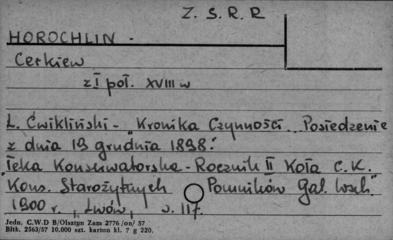 Z. S. R. R
HOROCHLIN -
Cerkiew
z I poł. XVIII w
L. Ćwikliński - "Kronika Czynności... Posiedzenie
z dnia 19 grudnia 1898."
"Teka Konserwatorska - Rocznik II Koła C. K.
Kons. Starożytnych Pomników Gal. Wsch."
1900 r., Lwów, s. 117.
Jedn. C.W.D B/Olsztyn Zam 2776/on/ 57
Bltk. 2563/57 10.000 szt. karton kl. 7 g 220.